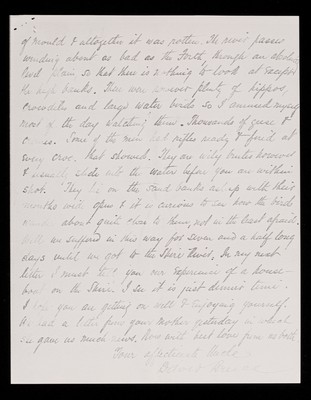 of mould & altogether it was rotten. The river passes
winding about as bad as the Forth, through an
flat plain so that there is nothing to look at except
the high banks. There were however plenty of hippos,
crocodiles and large water birds so I amused myself
most of the day watching them. Thousands of geese &
Some of the men had rifles ready & fired at
every croc. that showed. They are wily brutes however
& usually slide into the water before you are within
shot. They lie on the sand banks asleep with their
mouths wide open & it is curious to see how the birds
about quite close to them, not in the least afraid.
we suffered in this way for seven and a half long
days until we got to the Shire River. In my next
letter I must tell you our experience of a house-
boat on the Shire. I see it is just dinner time.
I hope you are getting on well & enjoying yourself.
We had a letter from your mother yesterday in which
she gave us much news. Now with best love from us both
Your affectionate Uncle